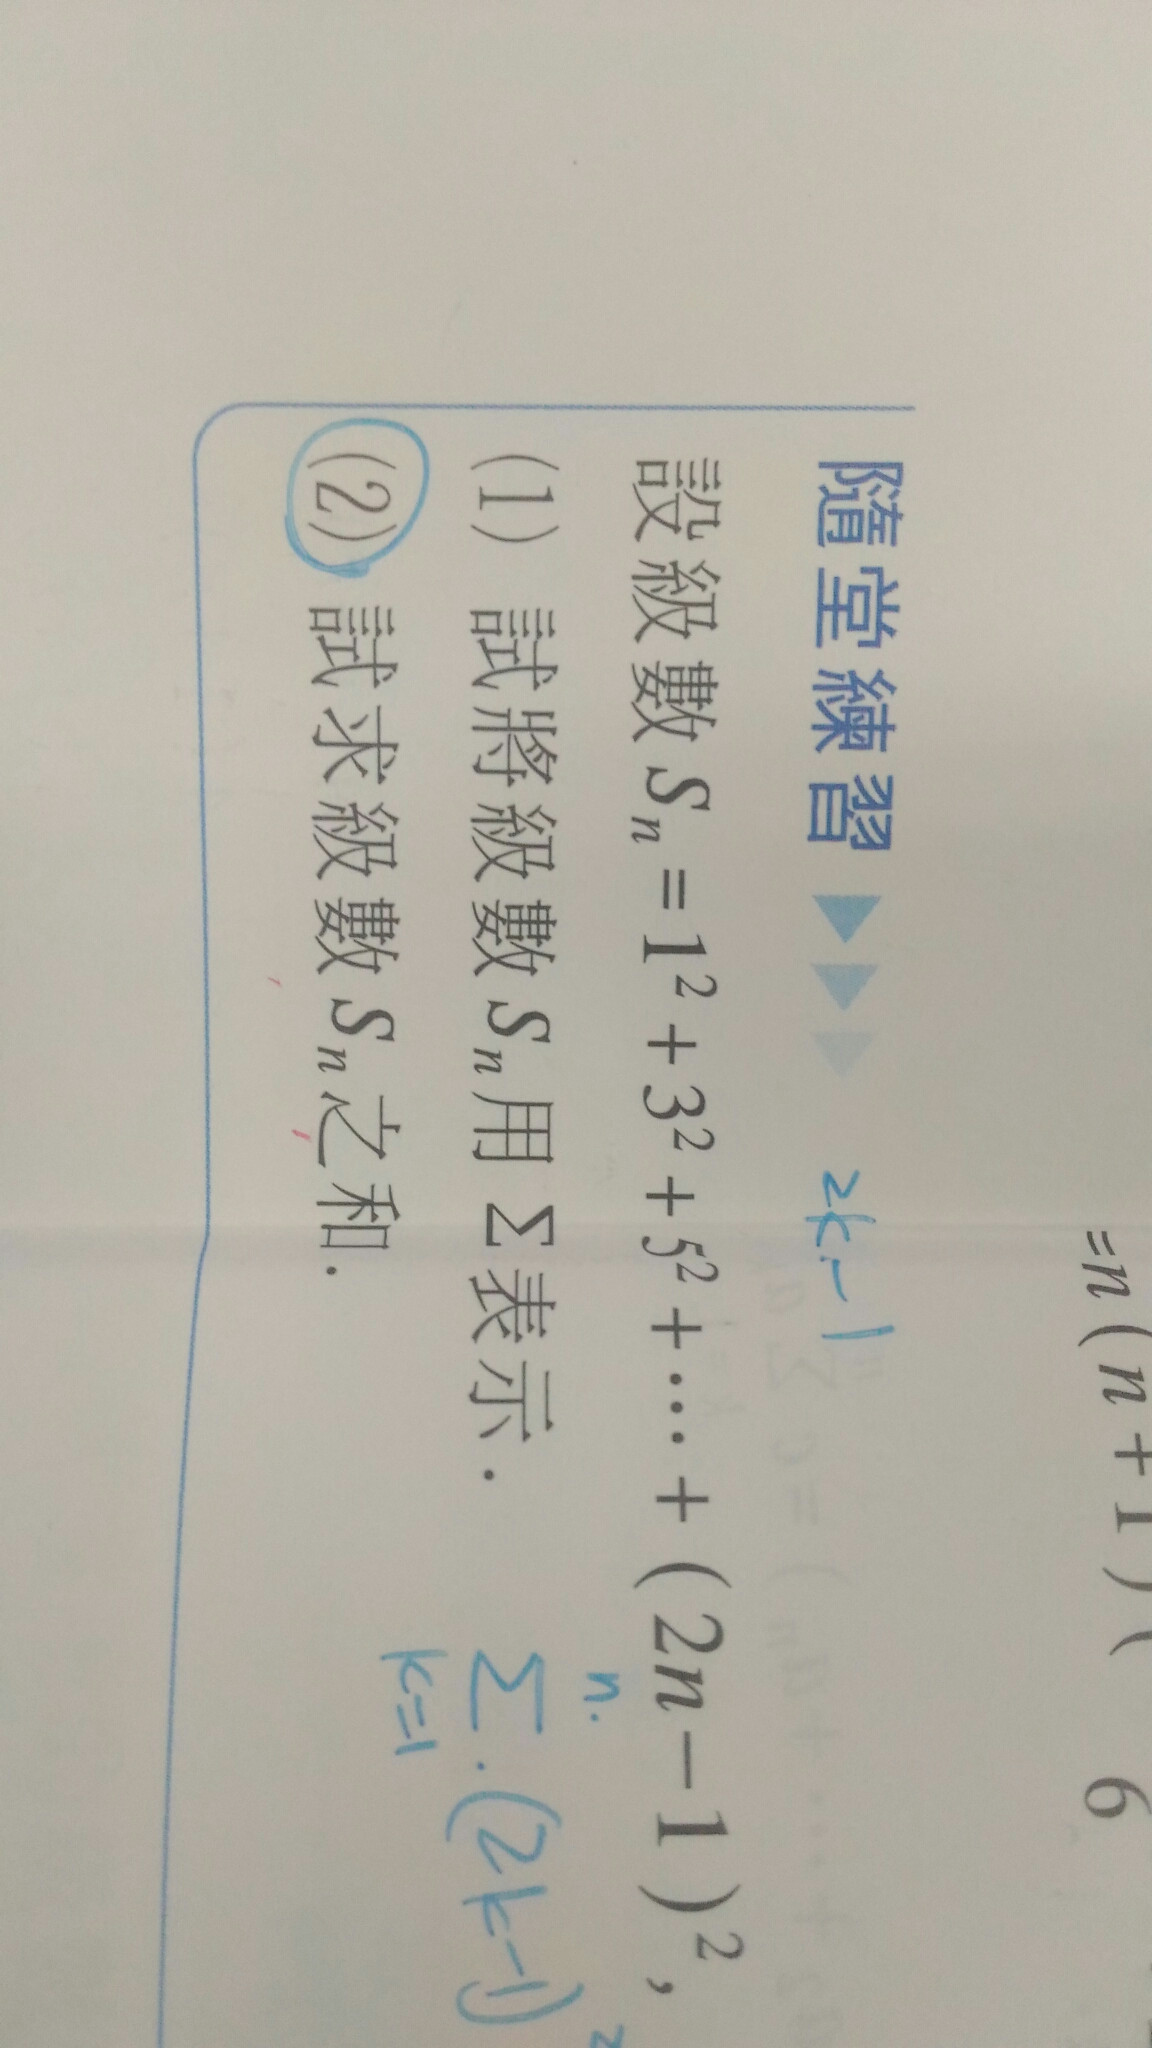 =n(n+1)(
6
隨堂練習
2k-1
設級數 Sₙ = 1² + 3² + 5² + … + (2n−1)²，
(1) 試將級數 Sₙ 用 Σ 表示．
n
Σ (2k-1)²
k=1
(2) 試求級數 Sₙ 之和．